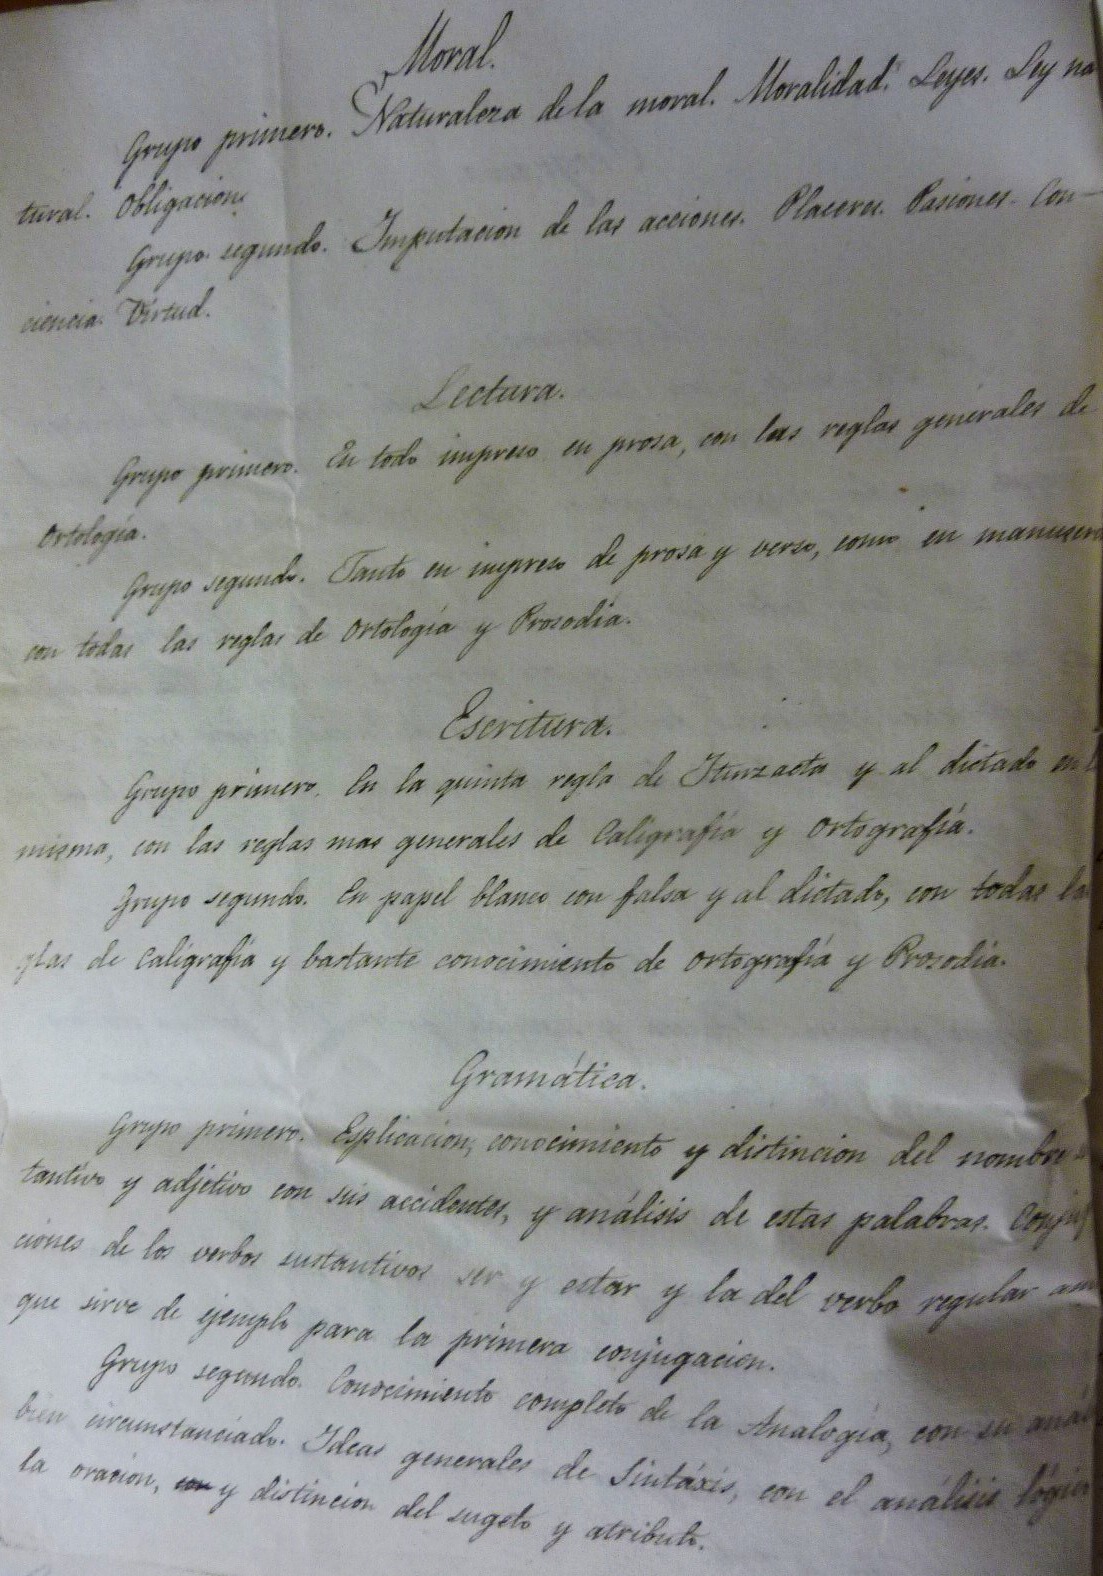 Moral.
Grupo primero. Naturaleza de la moral. Moralidad. Leyes. Ley na
tural. Obligacion.
Grupo segundo. Imputacion de las acciones. Placeres. Pasiones. Con-
ciencia. Virtud.
Lectura.
Grupo primero. En todo impreso en prosa, con las reglas generales de
Ortología.
Grupo segundo. Tanto en impreso de prosa y verso, como en manuscri
con todas las reglas de Ortología y Prosodia.
Escritura.
Grupo primero. En la quinta regla de Iturzaeta y al dictado en l
misma, con las reglas mas generales de Caligrafía y Ortografía.
Grupo segundo. En papel blanco con falsa y al dictado, con todas la
glas de Caligrafía y bastante conocimiento de Ortografía y Prosodia.
Gramática.
Grupo primero. Esplicacion, conocimiento y distincion del nombre
tantivo y adjetivo con sus accidentes, y análisis de estas palabras. Conju
ciones de los verbos sustantivos ser y estar y la del verbo regular am
que sirve de ejemplo para la primera conjugacion.
Grupo segundo. Conocimiento completo de la Analogía, con su anál
bien circunstanciado. Ideas generales de Sintáxis, con el análisis lógico
la oracion, con y distincion del sugeto y atributo.